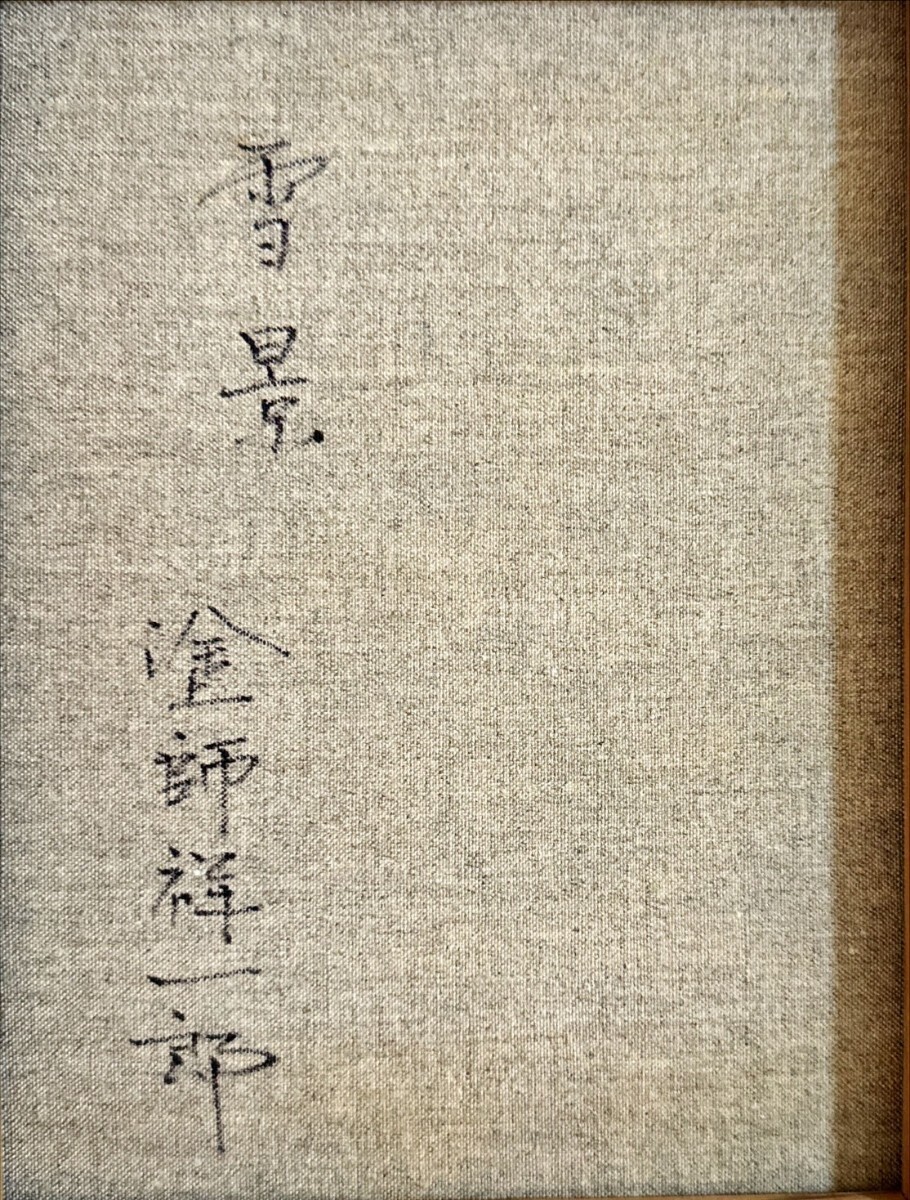 雪景
塗師祥一郎